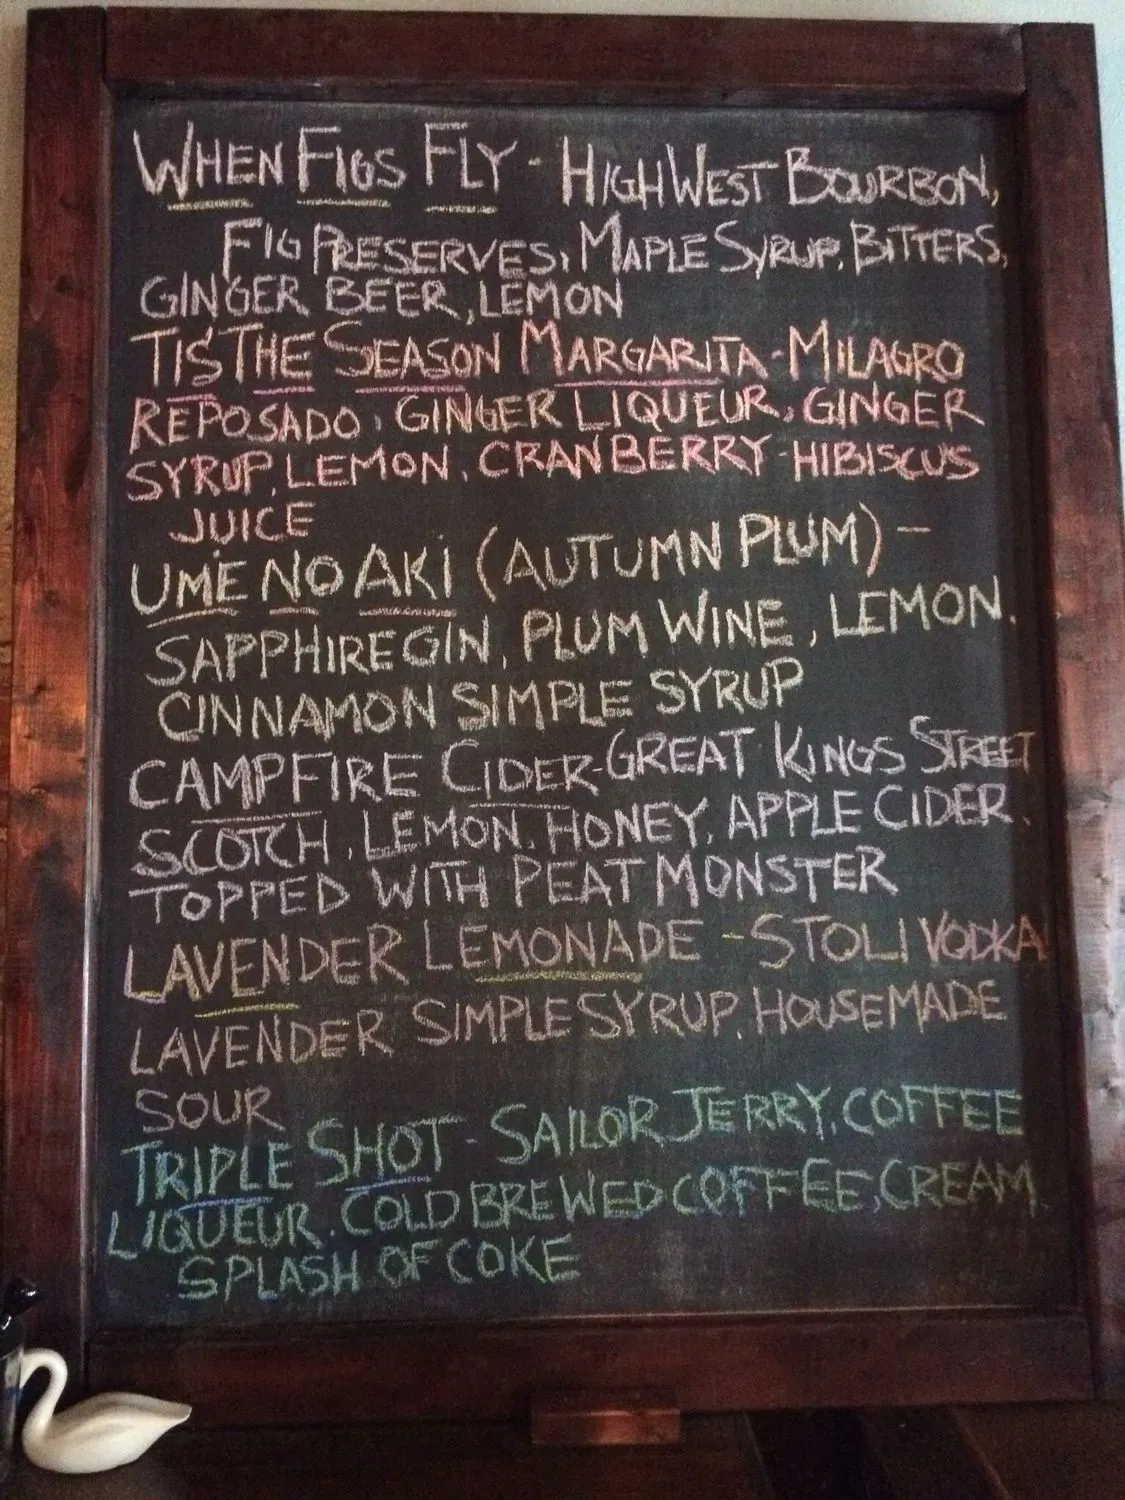 WHEN FIGS FLY - HIGH WEST BOURBON,
FIG PRESERVES, MAPLE SYRUP, BITTERS,
GINGER BEER, LEMON
TIS' THE SEASON MARGARITA - MILAGRO
REPOSADO, GINGER LIQUEUR, GINGER
SYRUP, LEMON, CRANBERRY-HIBISCUS
JUICE
UME NO AKI (AUTUMN PLUM) -
SAPPHIRE GIN, PLUM WINE, LEMON,
CINNAMON SIMPLE SYRUP
CAMPFIRE CIDER - GREAT KINGS STREET
SCOTCH, LEMON, HONEY, APPLE CIDER,
TOPPED WITH PEAT MONSTER
LAVENDER LEMONADE - STOLI VODKA
LAVENDER SIMPLE SYRUP, HOUSEMADE
SOUR
TRIPLE SHOT - SAILOR JERRY, COFFEE
LIQUEUR, COLD BREWED COFFEE, CREAM,
SPLASH OF COKE